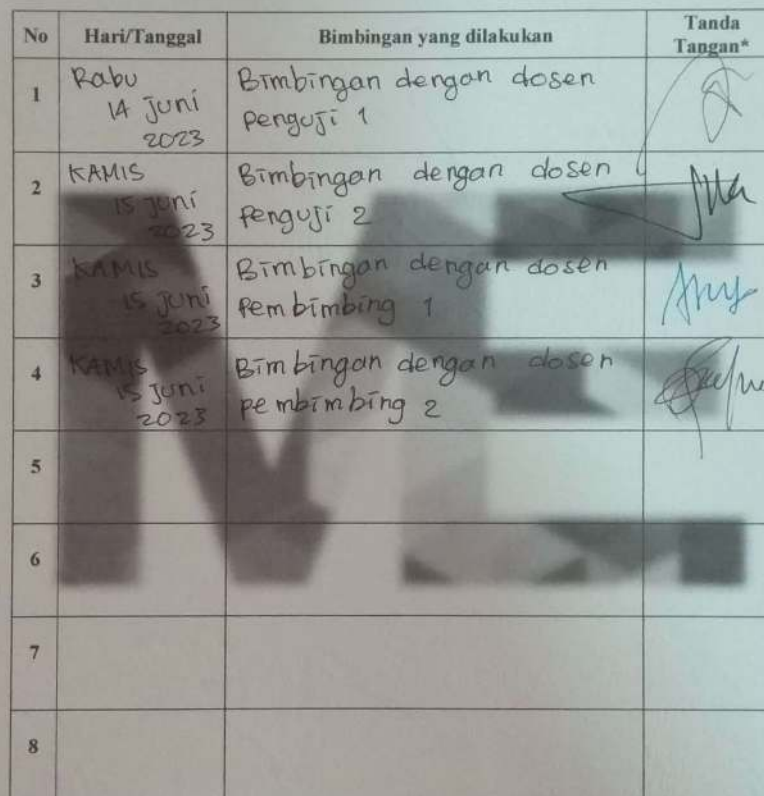 No Hari/Tanggal Bimbingan yang dilakukan Tanda Tangan*
1 Rabu 14 Juni 2023 Bimbingan dengan dosen penguji 1
2 KAMIS 15 Juni 2023 Bimbingan dengan dosen penguji 2
3 KAMIS 15 Juni 2023 Bimbingan dengan dosen pembimbing 1
4 KAMIS 15 Juni 2023 Bimbingan dengan dosen pembimbing 2
5
6
7
8